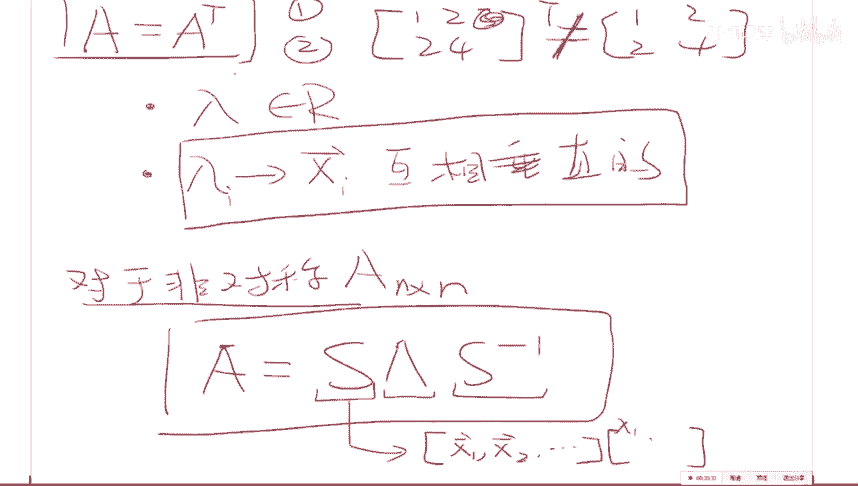 A = Aᵀ ① 
② [1 2 2 4]ᵀ ≠ [1 2 2 4]
• λ ∈ R
• λᵢ → x⃗ᵢ 互相垂直的
对于非对称 Aₙₓₙ
A = S Λ S⁻¹
[x⃗₁, x⃗₂, ...] [x₁ .. ]